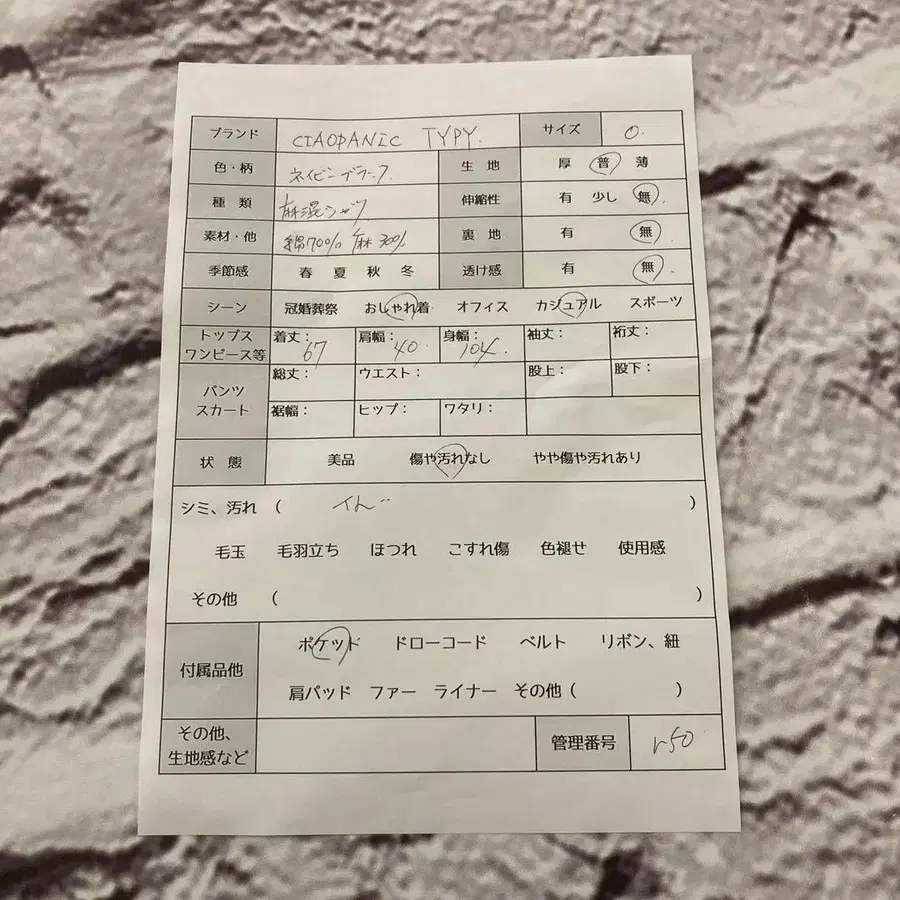 ブランド CIAOPANIC TYPY. サイズ 0.
色・柄 ネイビーブラック. 生 地 厚 普 薄
種 類 麻混シャツ 伸縮性 有 少し 無
素材・他 綿70% 麻30% 裏 地 有 無
季節感 春 夏 秋 冬 透け感 有 無
シーン 冠婚葬祭 おしゃれ着 オフィス カジュアル スポーツ
トップス ワンピース等 着丈: 67 肩幅: 40. 身幅: 104. 袖丈: 裄丈:
パンツ スカート 総丈: ウエスト: 股上: 股下:
裾幅: ヒップ: ワタリ:
状 態 美品 傷や汚れなし やや傷や汚れあり
シミ、汚れ ( )
毛玉 毛羽立ち ほつれ こすれ傷 色褪せ 使用感
その他 ( )
付属品他 ポケット ドローコード ベルト リボン、紐
肩パッド ファー ライナー その他 ( )
その他、 生地感など 管理番号 r50